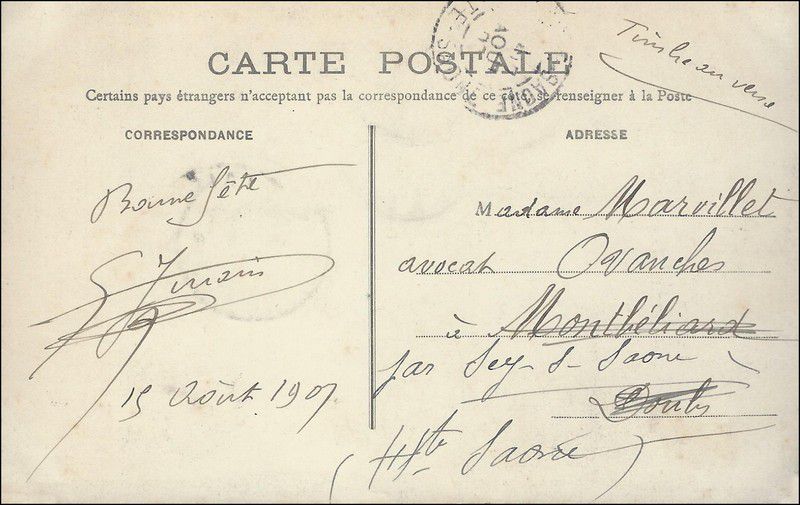 CARTE POSTALE
Timbre au verso
Certains pays étrangers n'acceptant pas la correspondance de ce côté, se renseigner à la Poste
CORRESPONDANCE
Bonne fête
15 Août 1907
ADRESSE
Madame Marvillet
avocat Ovanches
à Montbéliard
par Scy-s-Saone
Doubs
(Hte Saone)